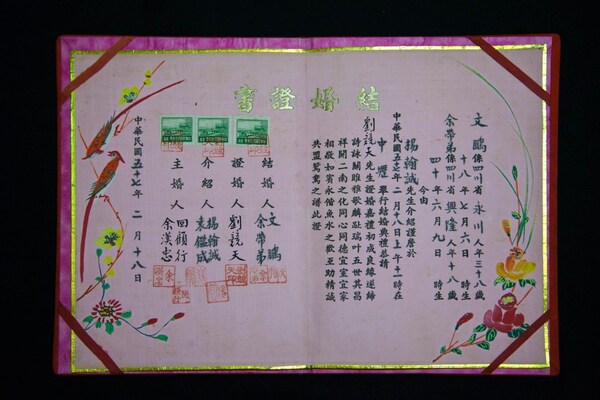 結婚證書
文鵬係四川省永川人年三十八歲
十八年七月六日　時生
余帶弟係四川省興隆人年十八歲
四十年六月九日　時生
今由
楊翰誠先生介紹謹居於
中華民國五十七年二月十八日上午十一時在
中壢舉行結婚典禮恭請
劉競天先生證婚嘉禮初成良緣遂締
詩詠關雎雅歌麟趾瑞叶五世其昌
祥開二南之化同心同德宜室宜家
相敬如賓永偕魚水之歡互助精誠
共盟鴛鴦之譜此證
結婚人 文鵬
余帶弟
證婚人 劉競天
介紹人 楊翰誠
袁鑑成
主婚人 回顧行
余漢忠
中華民國五十七年二月十八日